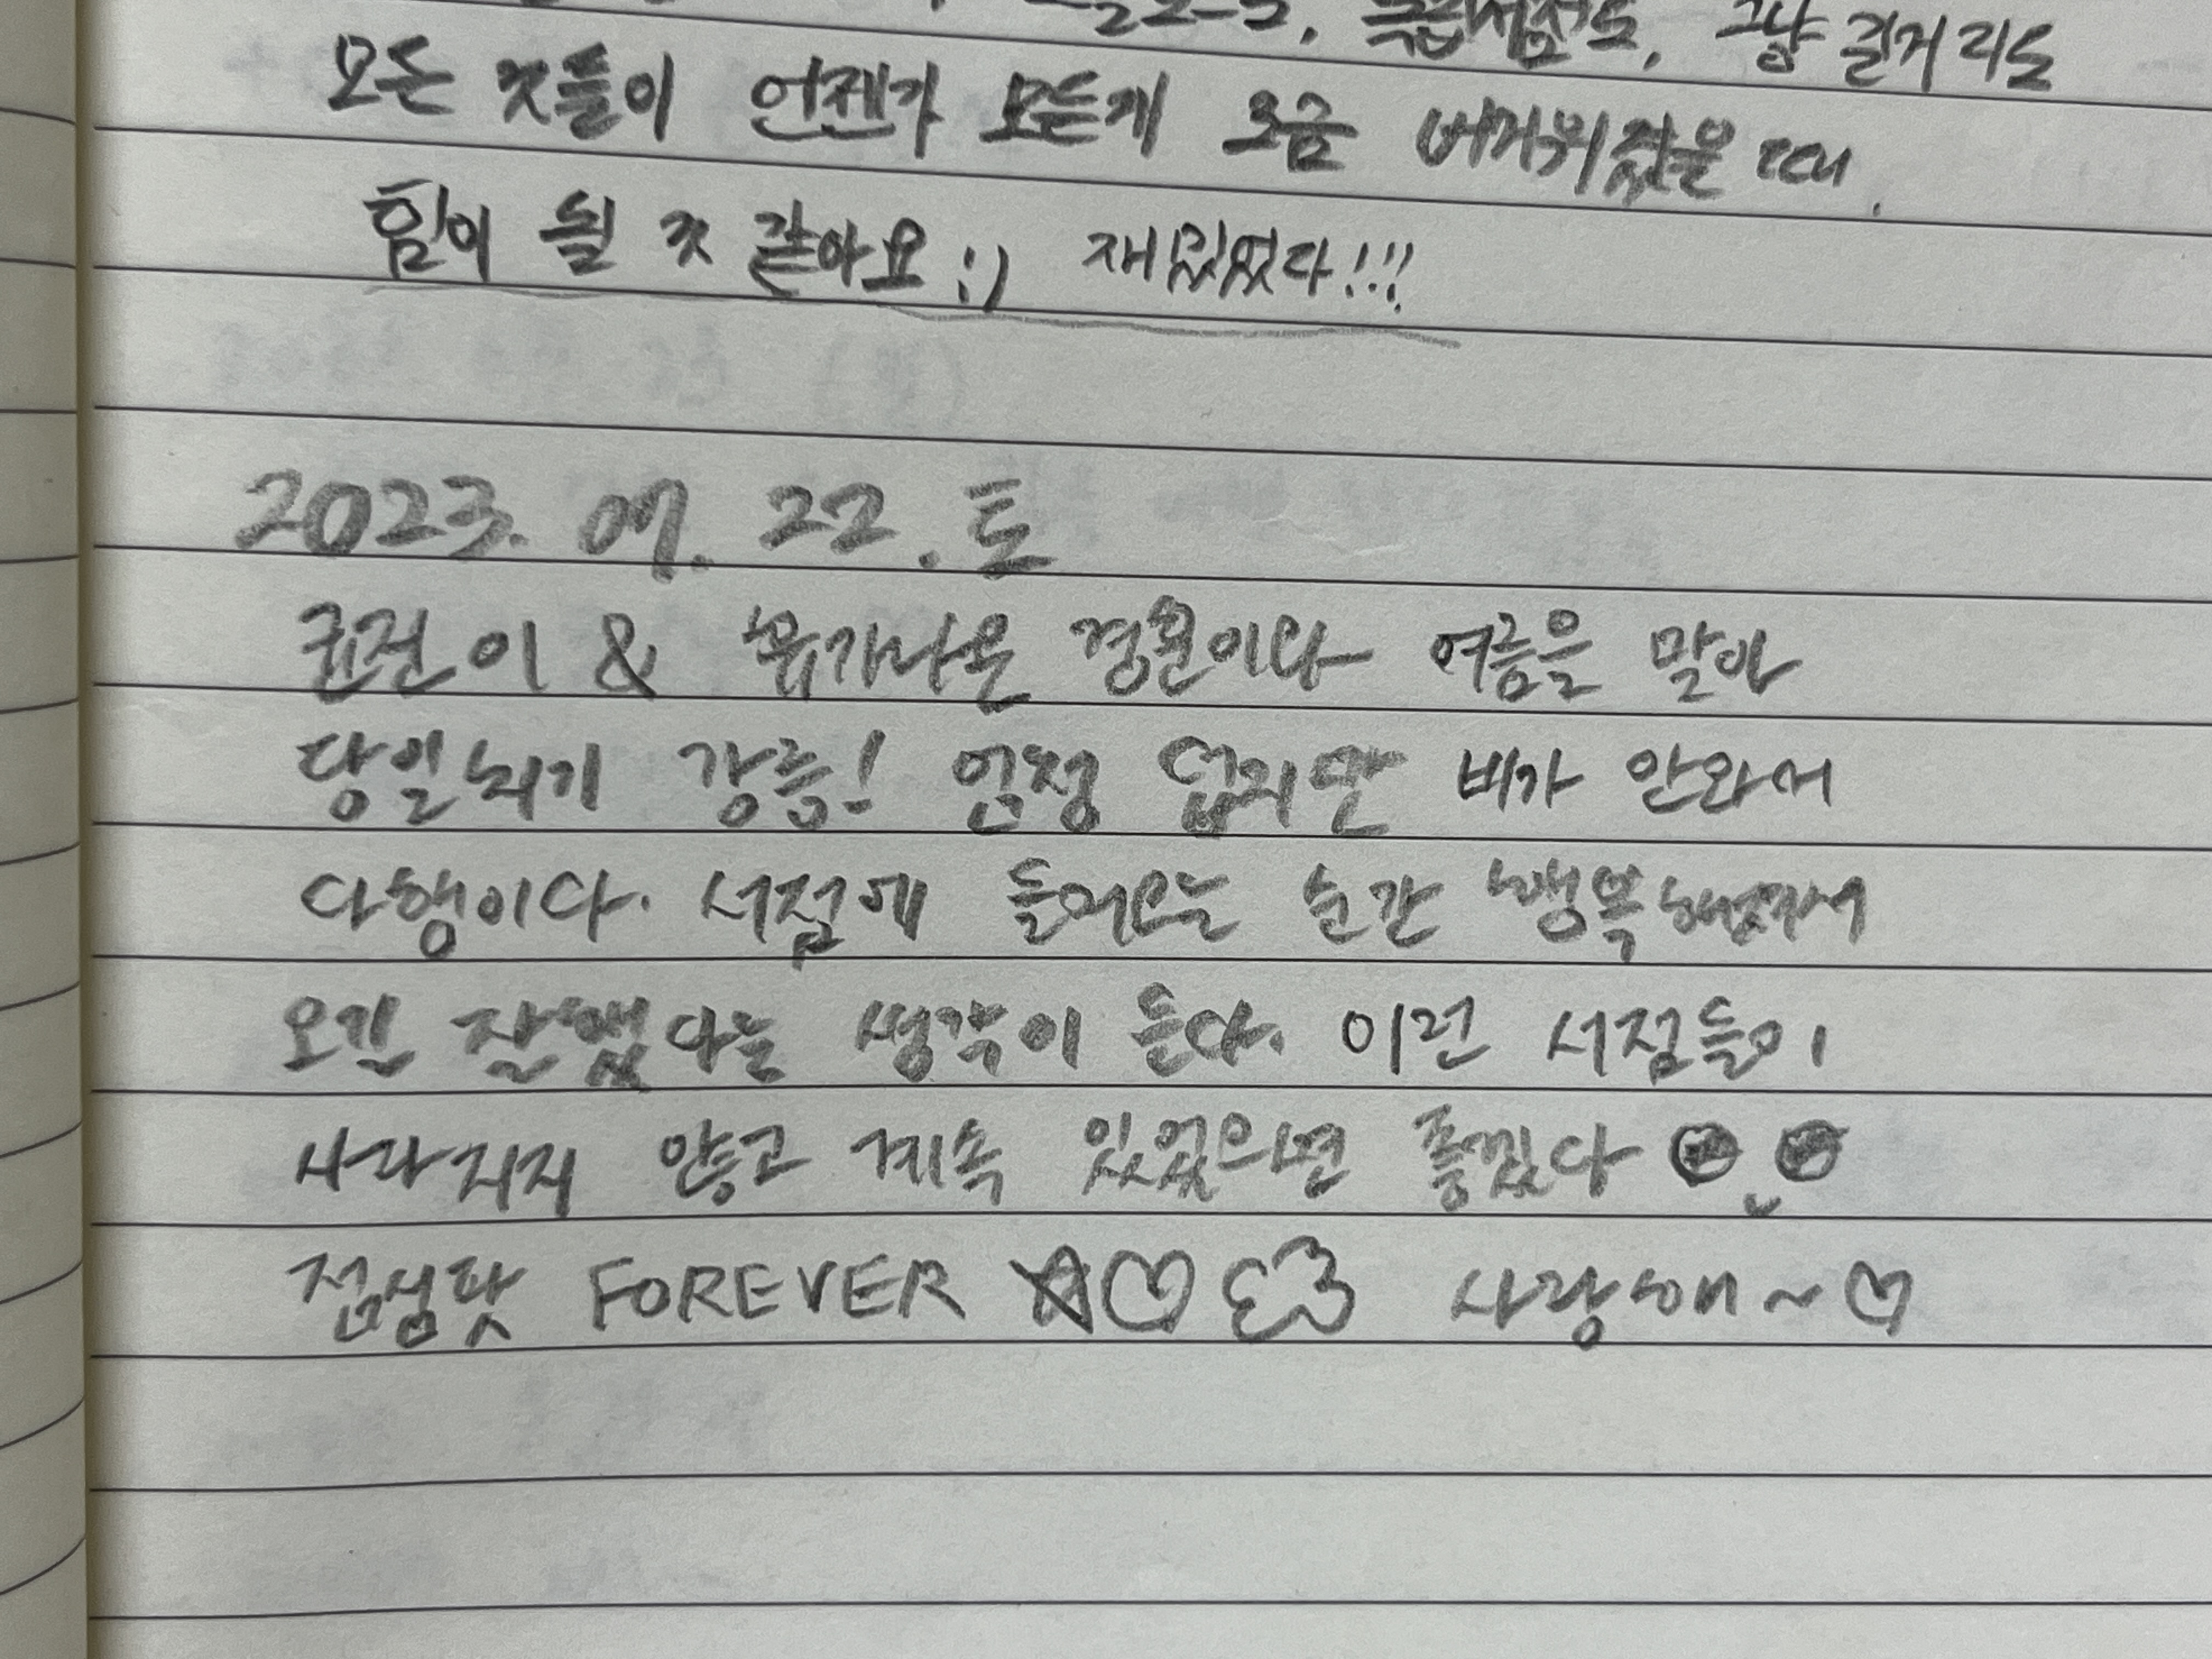 그냥 길거리도
모든 것들이 언젠가 모든게 조금 버거워졌을 때,
힘이 될 것 같아요 :) 재밌었다!!!
2023. 07. 22. 토
이 & 경훈이다 여름을 맞아
당일치기 강릉! 엄청 덥지만 비가 안와서
다행이다. 서점에 들어오는 순간 행복해져서
오길 잘했다는 생각이 든다. 이런 서점들이
사라지지 않고 계속 있었으면 좋겠다
FOREVER 사랑해~♡